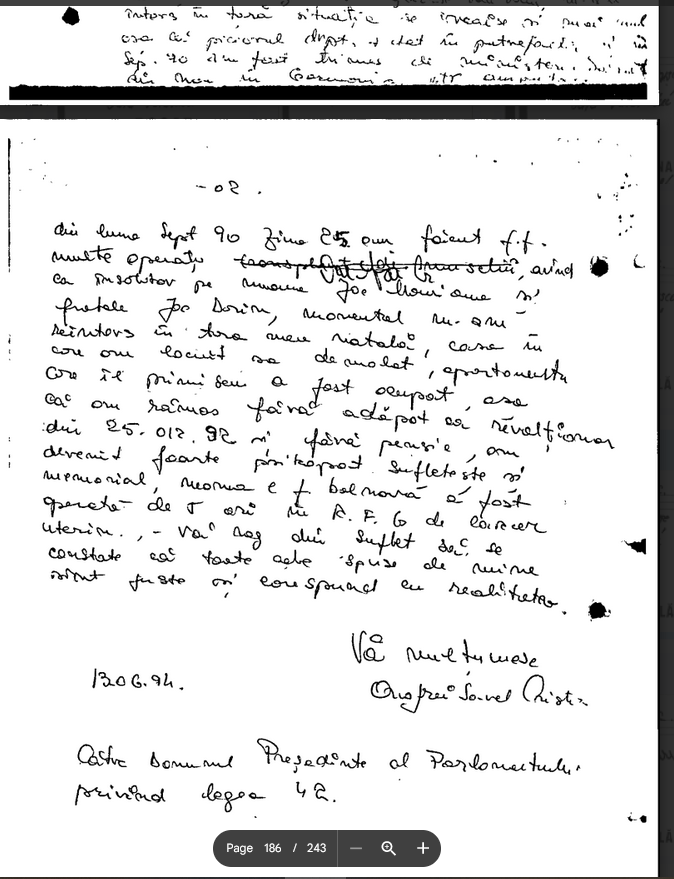 întors în țară situația se
asa că piciorul drept, a stat în putrefacți, și în
Sep. 90 am fost trimes de minister,
din nou în Germania
- 02.
din luna Sept 90 ziua 25 am făcut f.f.
multe operați avînd
ca însoțitor pe mama Joc și
fratele Joc Sorin, momentul m-am
reîntors în țara mea natală, casa în
care am locuit sa demolat, apartamentu
care îl primisem a fost ocupat, asa
că am rămas fără adăpost ca
din 25. 012. 92 și fără pensie, am
devenit foarte psihopat sufletește și
memorial, mama e f. bolnavă a fost
operată de ori în R.F.G de cancer
uterin., - Vă rog din suflet să se
constate că toate cele spuse de mine
sînt juste și corespund cu realitatea.
Vă mulțumesc
1306.94.
Onofrei Savel Cristi
Către Domnul Președinte al Parlamentului
privind legea 42.
Page 186 / 243